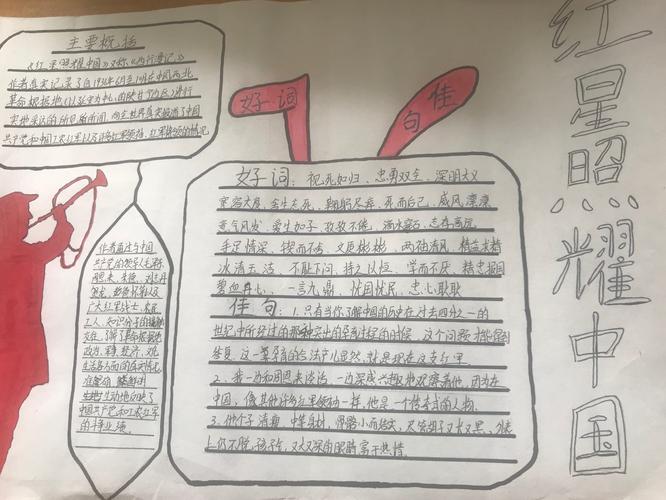 红星照耀中国
主要概括
《红星照耀中国》又称《西行漫记》
作者真实记录了自1936年6月至10月在中国西北
革命根据地(以延安为中心的陕甘宁边区)进行
实地采访的所见所闻,向全世界真实报道了中国
共产党和中国工农红军以及许多红军领袖、红军将领的情况
好词
佳句
好词:视死如归、忠勇双全、深明大义
宽容大度、舍生忘死、鞠躬尽瘁、死而后已、威风凛凛
意气风发、爱生如子、孜孜不倦、滴水穿石、志存高远
手足情深、锲而不舍、文质彬彬、两袖清风、精益求精
冰清玉洁、不耻下问、持之以恒、学而不厌、精忠报国
碧血丹心、一言九鼎、忧国忧民、忠心耿耿
佳句:1.只有当你了解中国的历史在过去四分之一的
世纪中所经过的那种突出的孕育过程的时候,这个问题才能得到
答复,这一孕育的合法产儿显然就是现在这支红军
2、我一边和周恩来谈话,一边深感兴趣地观察着他,因为在
中国,像其他许多红军领袖一样,他是一个传奇式的人物.
3.他个子清瘦,中等身材,骨骼小而结实,尽管胡子又长又黑,外表
上仍不脱孩子气,又大又深的眼睛富于热情.
作者通过与中国
共产党的领导人毛泽东
周恩来、朱德、刘志丹
贺龙、彭德怀等以及
广大红军战士、农民
工人、知识分子的接触
交往,了解了革命根据地
政治、军事、经济、文化
生活各方面的真实情况
准确的、鲜明
生动地反映了
中国共产党和工农红军
的斗争业绩。